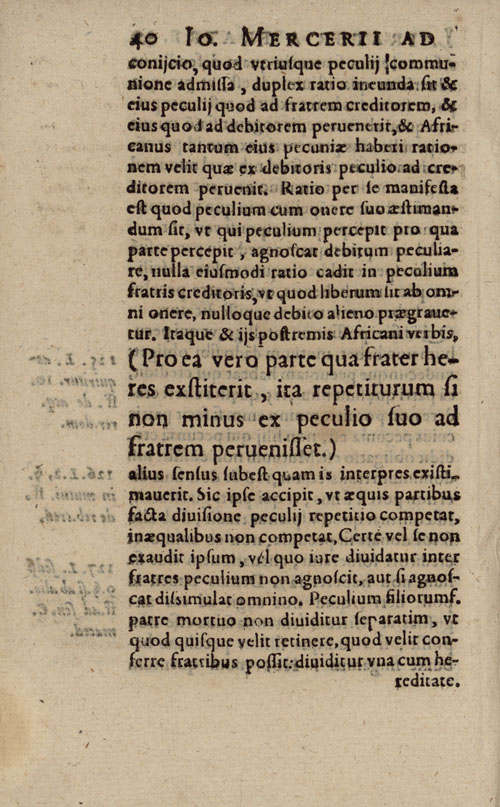 40 IO. MERCERII AD
conijcio, quod vtriusque peculij commu-
nione admissa, duplex ratio ineunda sit &
eius peculij quod ad fratrem creditorem, &
eius quod ad debitorem peruenerit, & Afri-
canus tantum eius pecuniæ haberi ratio-
nem velit quæ ex debitoris peculio ad cre-
ditorem peruenit. Ratio per se manifesta
est quod peculium cum onere suo æstiman-
dum sit, vt qui peculium percepit pro qua
parte percepit, agnoscat debitum peculia-
re, nulla eiusmodi ratio cadit in peculium
fratris creditoris, vt quod liberum sit ab om-
ni onere, nulloque debito alieno prægraue-
tur. Itaque & ijs postremis Africani verbis,
(Pro ea vero parte qua frater he-
res exstiterit, ita repetiturum si
non minus ex peculio suo ad
fratrem peruenisset.)
alius sensus subest quam is interpres existi-
mauerit. Sic ipse accipit, vt æquis partibus
facta diuisione peculij repetitio competat,
inæqualibus non competat, Certé vel se non
exaudit ipsum, vel quo iure diuidatur inter
fratres peculium non agnoscit, aut si agnos-
cat dissimulat omnino. Peculium filiorumf.
patre mortuo non diuiditur separatim, vt
quod quisque velit retinere, quod velit con-
ferre fratribus possit: diuiditur vna cum he-
reditate.